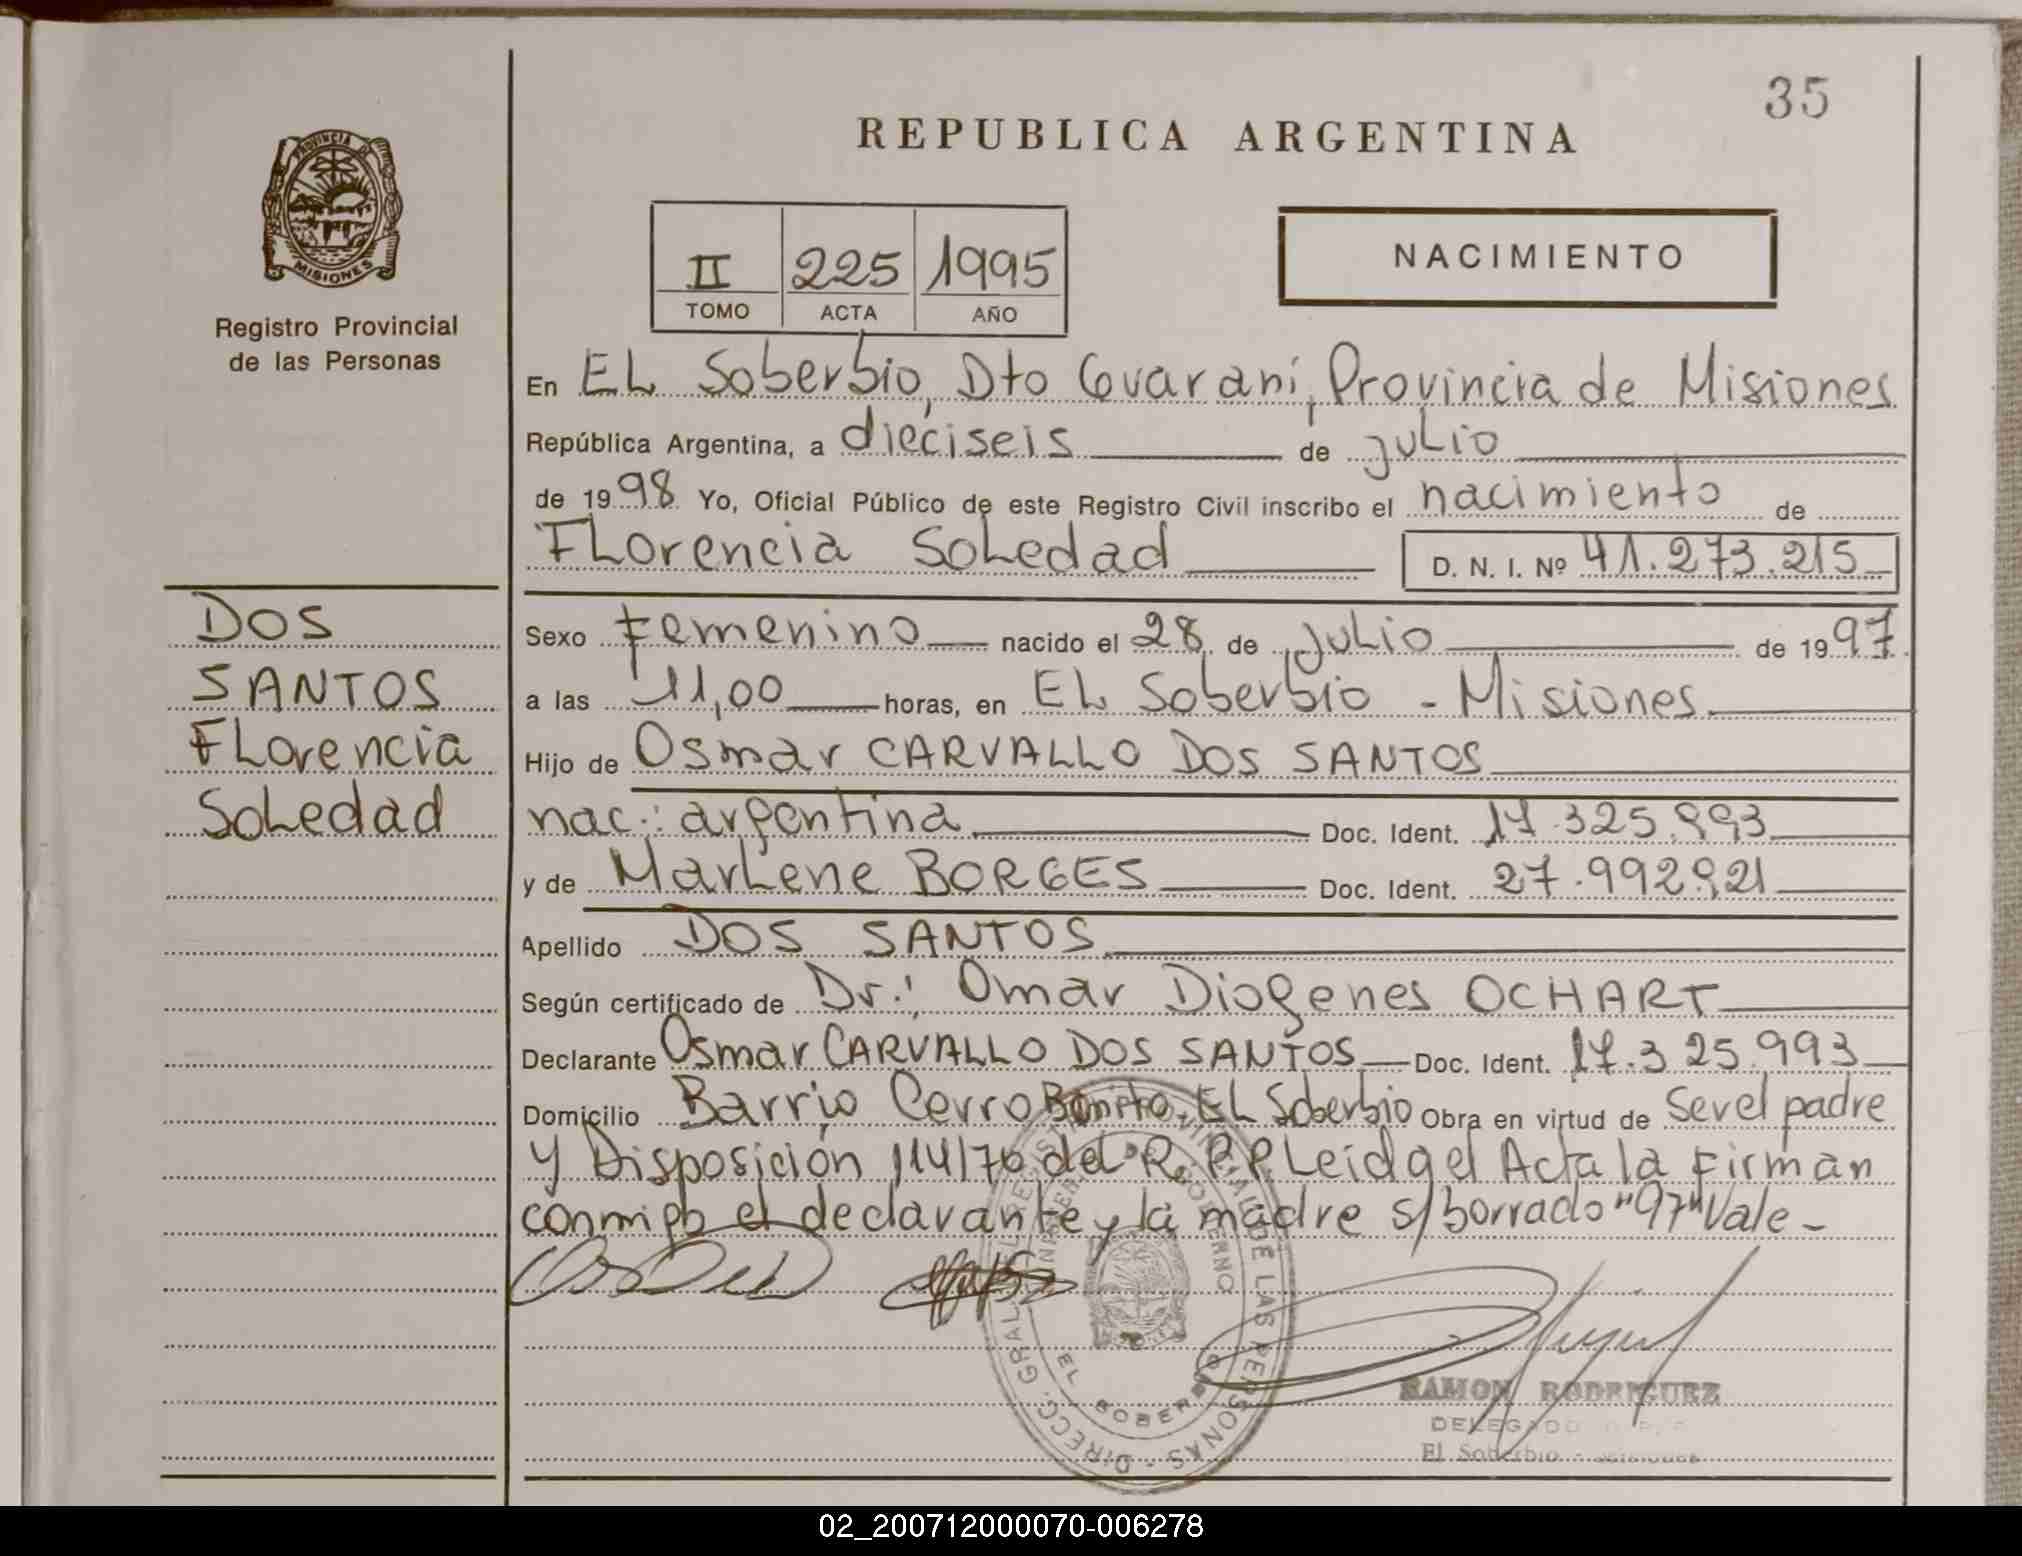 35
REPUBLICA ARGENTINA
PROVINCIA DE
MISIONES
Registro Provincial
de las Personas
II 225 1995
TOMO ACTA AÑO
NACIMIENTO
En EL Soberbio, Dto Guaraní, Provincia de Misiones
República Argentina, a dieciseis de julio
de 1998 Yo, Oficial Público de este Registro Civil inscribo el nacimiento de
Florencia Soledad D. N. I. Nº 41.273.215
DOS
SANTOS
Florencia
Soledad
Sexo Femenino nacido el 28 de julio de 1997
a las 11,00 horas, en EL Soberbio - Misiones
Hijo de Osmar CARVALLO DOS SANTOS
nac: argentina Doc. Ident. 17.325.993
y de Marlene BORGES Doc. Ident. 27.992.921
Apellido DOS SANTOS
Según certificado de Dr.: Omar Diogenes OCHART
Declarante Osmar CARVALLO DOS SANTOS Doc. Ident. 17.325.993
Domicilio Barrio Cerro Bonito - EL Soberbio Obra en virtud de Ser el padre
y Disposición 114/76 del R.P.P Leida el Acta la Firman
conmigo el declarante y la madre s/borrado "97" Vale -
DIRECC. GRAL. DEL REGISTRO PROVINCIAL DE LAS PERSONAS
EL SOBERBIO
RAMON RODRIGUEZ
DELEGADO
El Soberbio - Misiones
02_200712000070-006278